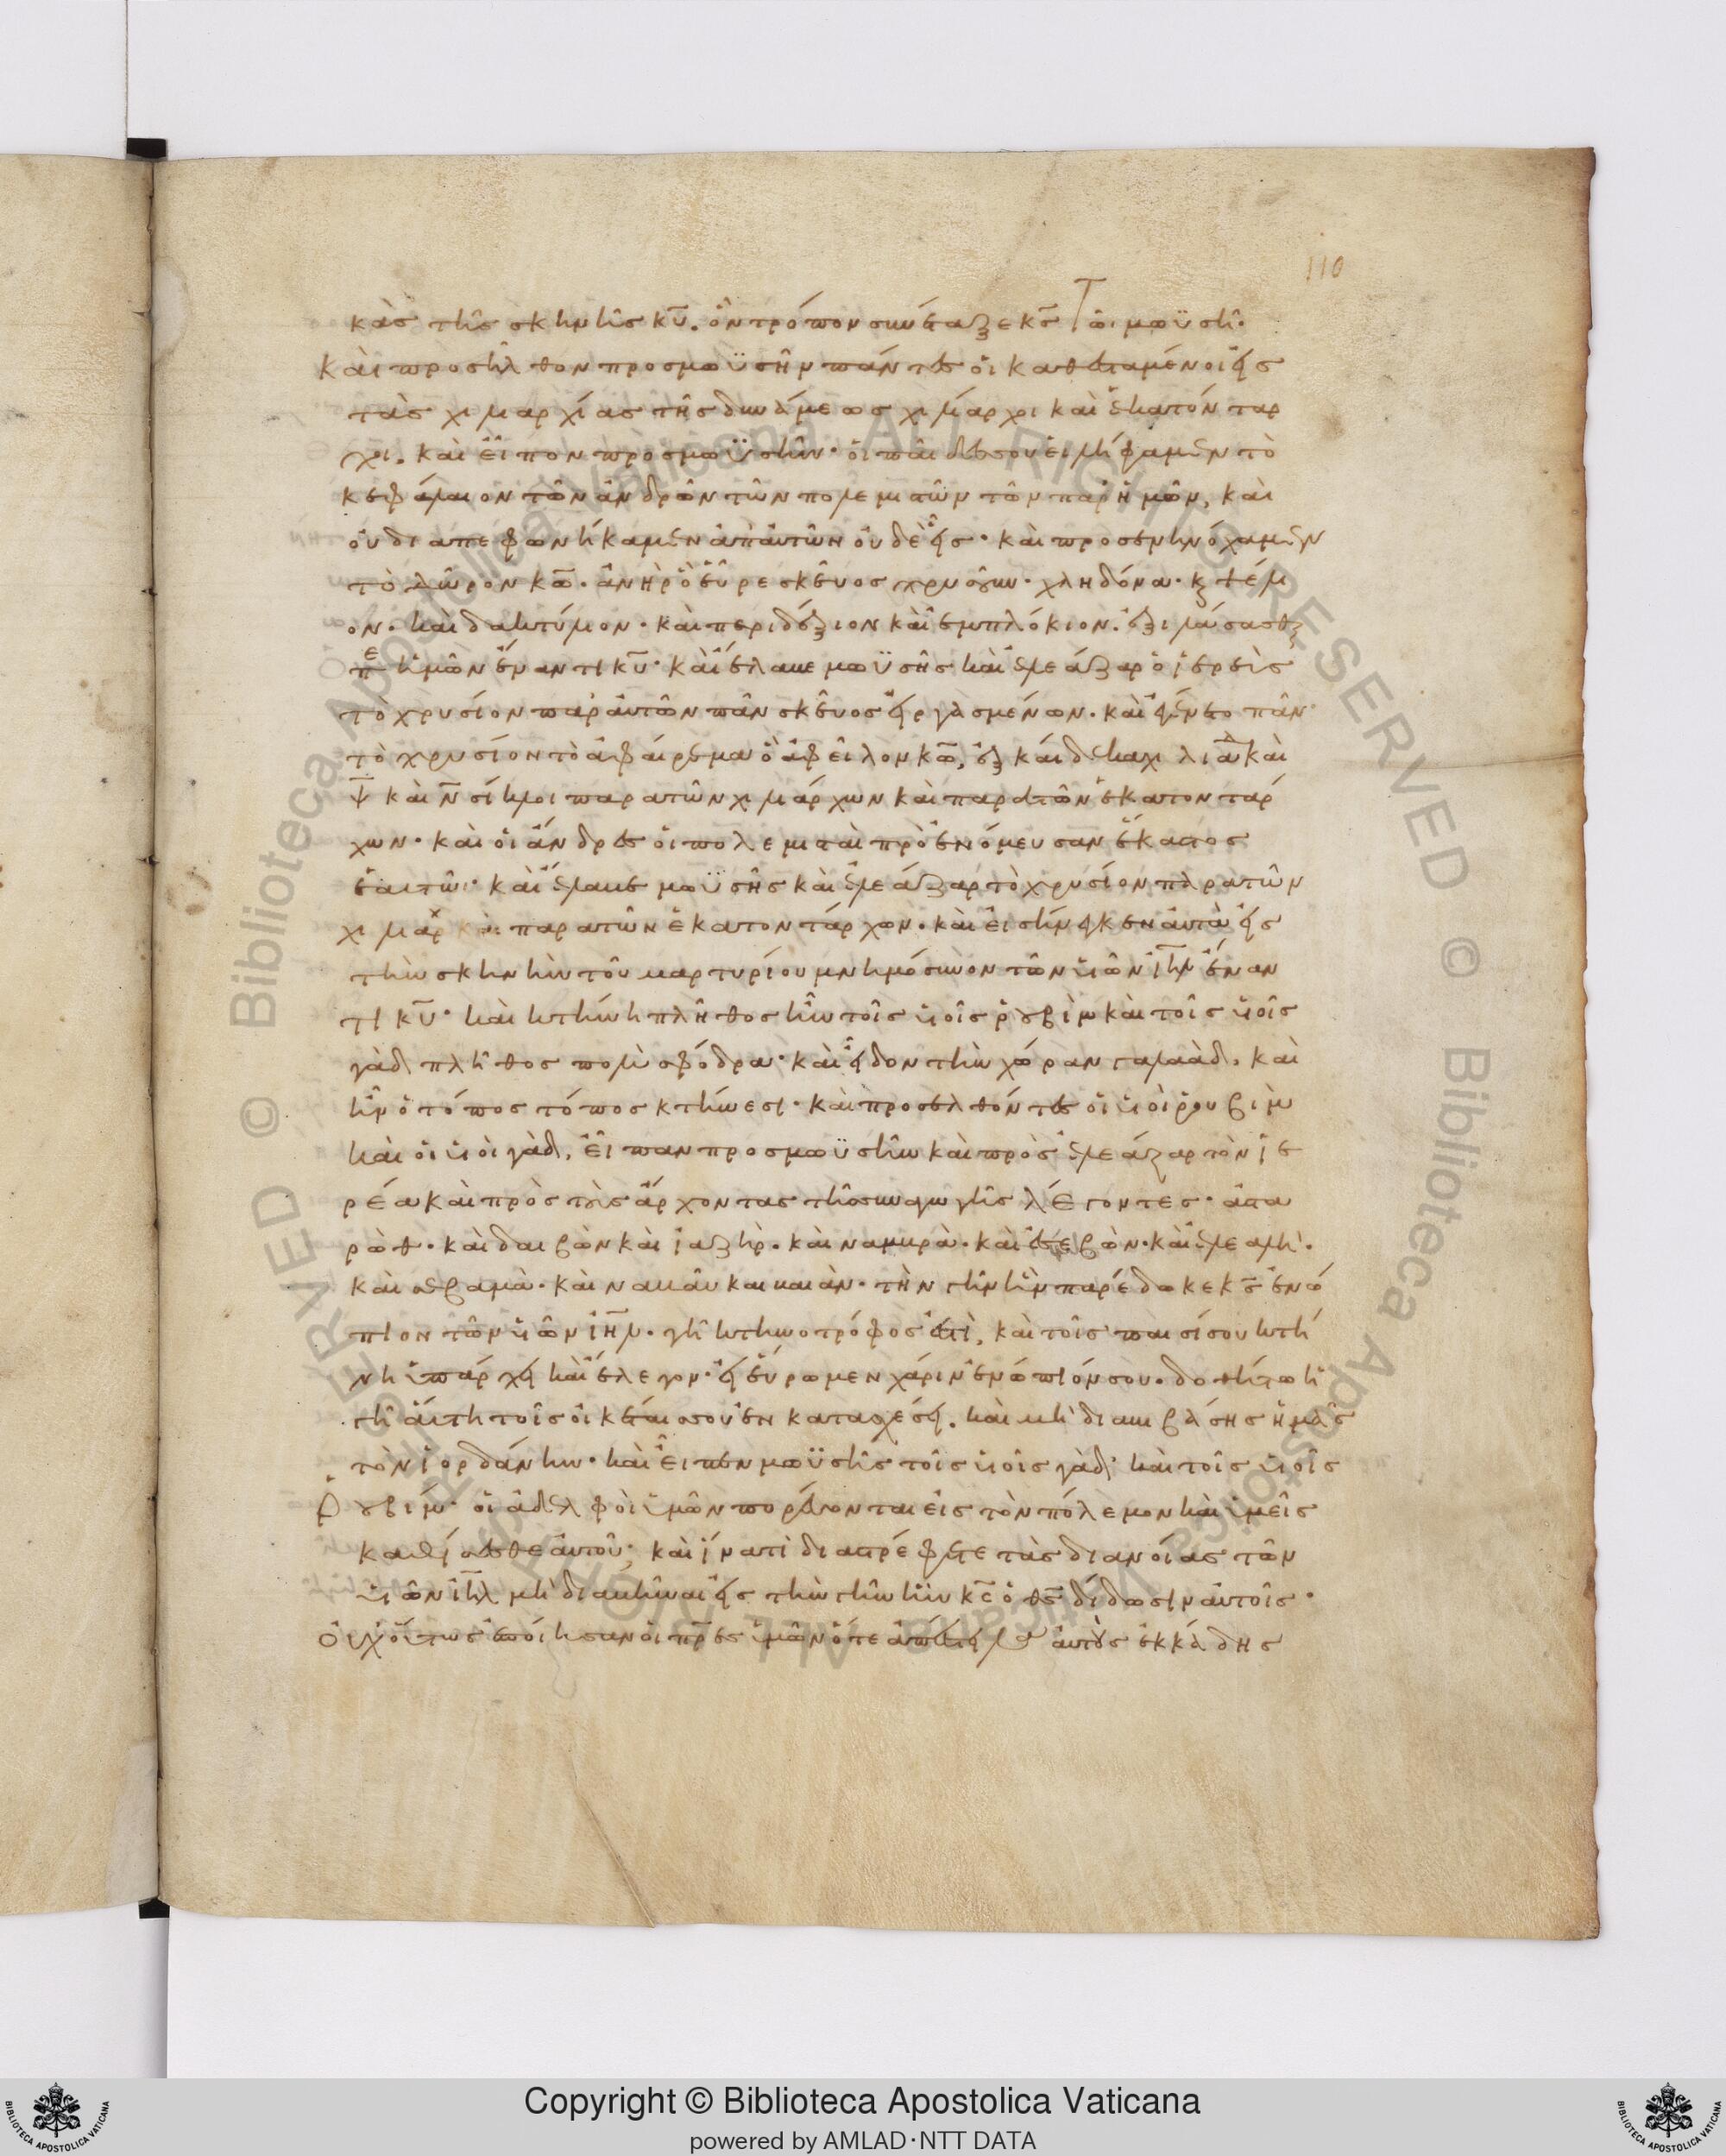 110
κὰσ τῆσ σκηνῆσ κ̅υ̅. ὃν τρόπον συνέταξε κ̅σ̅ τῶι μωϋσῆ·
καὶ προσῆλθον προσ μωϋσῆν πάντεσ οἱ καθεσταμένοι εἰσ
τὰσ χιλιαρχίασ τῆσ δυνάμεωσ χιλίαρχοι καὶ ἑκατόνταρ
χοι. καὶ εἶπον πρὸσ μωϋσῆν· οἱ παῖδεσ σου εἰλήφαμεν τὸ
κεφάλαιον τῶν ἀνδρῶν τῶν πολεμιστῶν τῶν παρ ἡμῶν, καὶ
οὐ διαπεφώνηκαμεν ἀπ αὐτῶν οὐδὲ εἷσ· καὶ προσενηνόχαμεν
τὸ δῶρον κ̅ω̅. ἀνὴρ ὃ εὗρε σκεῦοσ χρυσοῦν· χληδόνα· κ ψέλι
ον· καὶ δακτύλιον· καὶ περιδέξιον καὶ ἐμπλόκιον. ἐξιλάσασθαι
πε ἡμῶν ἔναντι κ̅υ̅· καὶ ἔλαβε μωϋσῆσ καὶ ἐλεάζαρ ὁ ἱερεὺσ
τὸ χρυσίον παρ αὐτῶν πᾶν σκεῦοσ εἰργασμένων· καὶ ἐγένετο πᾶν
τὸ χρυσίον τὸ ἀφαίρεμα ὃ ἀφεῖλον κ̅ω̅, ἓξ καὶ δεκα χιλιάδ καὶ
ψ̅ καὶ ν̅ σίκλοι παρα τῶν χιλιάρχων καὶ παρα τῶν ἑκατοντάρ
χων· καὶ οἱ ἄνδρεσ οἱ πολεμισταὶ προενόμευσαν ἕκαστοσ
ἑαυτῶι· καὶ ἔλαβε μωϋσῆσ καὶ ἐλεάζαρ τὸ χρυσίον παρα τῶν
χιλιάρχ καὶ παρα τῶν ἑκατοντάρχων· καὶ εἰσήνεγκεν αὐτὰ εἰσ
τὴν σκηνὴν τοῦ μαρτυρίου μνημόσυνον τῶν υἱῶν ι̅η̅λ̅ ἔναν
τι κ̅υ̅· καὶ κτήνη πλῆθοσ ἦν τοῖσ υἱοῖσ ῥουβὶμ καὶ τοῖσ υἱοῖσ
γὰδ πλῆθοσ πολὺ σφόδρα· καὶ εἶδον τὴν χώραν γαλαὰδ. καὶ
ἦν ὁ τόποσ τόποσ κτήνεσι· καὶ προσελθόντεσ οἱ υἱοὶ ῥουβὶμ
καὶ οἱ υἱοὶ γὰδ, εἶπαν προσ μωϋσῆν καὶ πρὸσ ἐλεάζαρ τὸν ἱε
ρέα καὶ πρὸσ τοὺσ ἄρχοντασ τῆσ συναγωγῆσ λέγοντεσ· ἀστα
ρὼθ· καὶ δαιβὼν καὶ ἰαζὴρ· καὶ ναμρὰ· καὶ ἐσεβὼν· καὶ ἐλεαλὴ·
καὶ σεβαμὰ· καὶ ναβαῦ καὶ βαιὰν· τὴν γῆν ἣν παρέδωκε κ̅σ̅ ἐνώ
πιον τῶν υἱῶν ι̅η̅λ̅· γῆ κτηνοτρόφοσ ἐστὶ, καὶ τοῖσ παισί σου κτή
νη ὑπάρχει καὶ ἔλεγον· εἰ εὕρομεν χάριν ἐνώπιόν σου. δοθήτω ἡ
γῆ αὕτη τοῖσ οἰκέταισ σου ἐν κατασχέσει. καὶ μὴ διαβιβάσησ ἡμᾶσ
τὸν ἰορδάνην· καὶ εἶπεν μωϋσῆσ τοῖσ υἱοῖσ γὰδ καὶ τοῖσ υἱοῖσ
ῥουβίμ· οἱ ἀδελφοὶ ὑμῶν πορεύονται εἰσ τὸν πόλεμον καὶ ὑμεῖσ
καθίσεσθε αὐτοῦ; καὶ ἵνα τί διαστρέφετε τὰσ διανοίασ τῶν
υἱῶν ι̅η̅λ̅ μὴ διαβῆναι εἰσ τὴν γῆν ἣν κ̅σ̅ ὁ θ̅σ̅ δίδωσιν αὐτοῖσ·
οὐχ οὕτωσ ἐποίησαν οἱ π̅ρ̅εσ ὑμῶν ὅτε ἀπέστειλα αὐτοὺσ ἐκ κάδησ
Copyright © Biblioteca Apostolica Vaticana
powered by AMLAD·NTT DATA